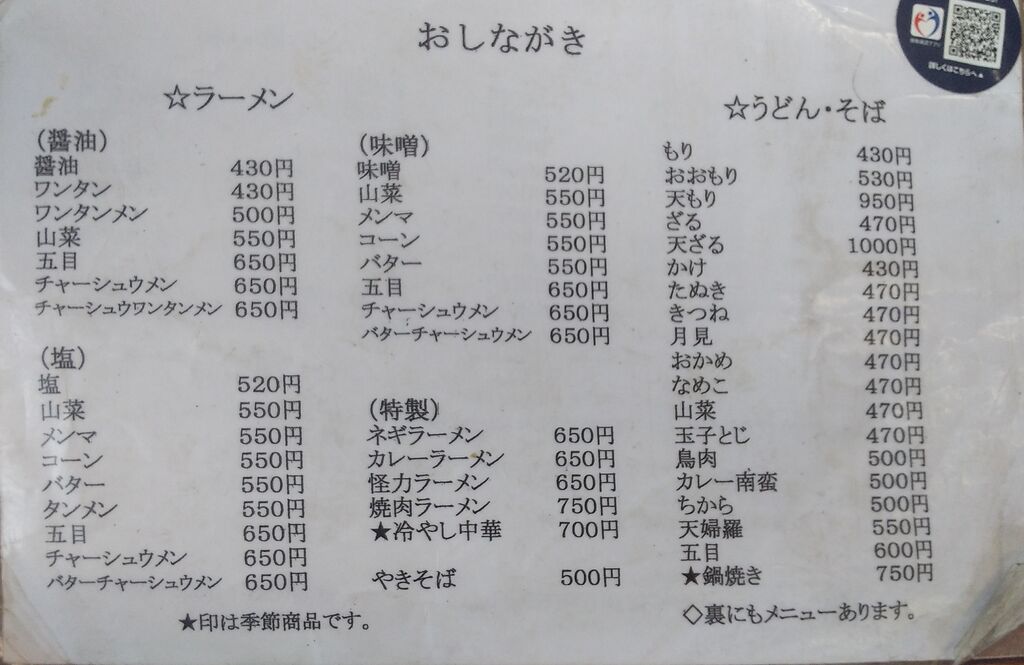 おしながき
☆ラーメン
(醤油)
醤油 430円
ワンタン 430円
ワンタンメン 500円
山菜 550円
五目 650円
チャーシュウメン 650円
チャーシュウワンタンメン 650円
(塩)
塩 520円
山菜 550円
メンマ 550円
コーン 550円
バター 550円
タンメン 550円
五目 650円
チャーシュウメン 650円
バターチャーシュウメン 650円
★印は季節商品です。
(味噌)
味噌 520円
山菜 550円
メンマ 550円
コーン 550円
バター 550円
五目 650円
チャーシュウメン 650円
バターチャーシュウメン 650円
(特製)
ネギラーメン 650円
カレーラーメン 650円
怪力ラーメン 650円
焼肉ラーメン 750円
★冷やし中華 700円
やきそば 500円
☆うどん・そば
もり 430円
おおもり 530円
天もり 950円
ざる 470円
天ざる 1000円
かけ 430円
たぬき 470円
きつね 470円
月見 470円
おかめ 470円
なめこ 470円
山菜 470円
玉子とじ 470円
鳥肉 500円
カレー南蛮 500円
ちから 500円
天婦羅 550円
五目 600円
★鍋焼き 750円
◇裏にもメニューあります。
詳しくはこちらへ▲